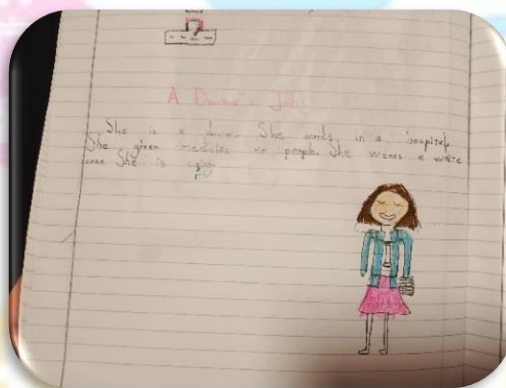 A Doctor's Job
She is a doctor. She works in a hospital.
She gives medicine to people. She wears a white
She is